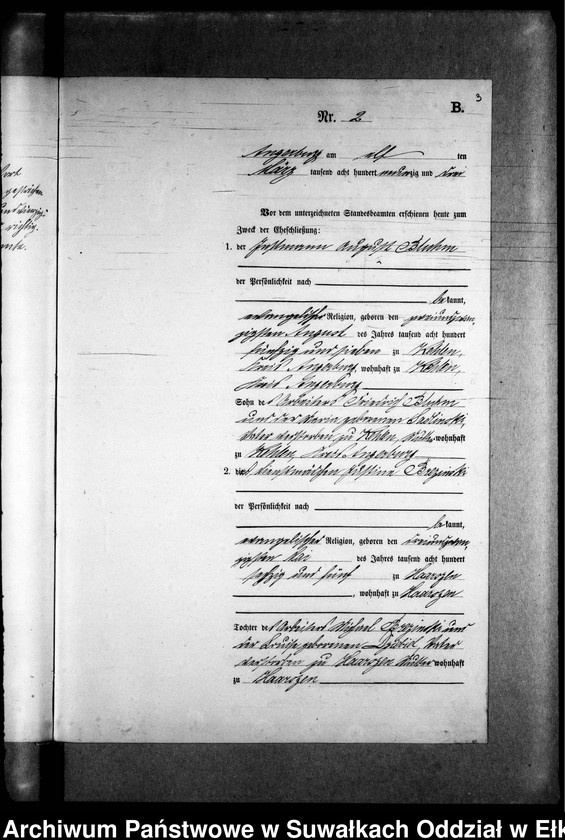 3
B.
Nr. 2
Angerburg am elf ten
März tausend acht hundert neunzig und drei
Vor dem unterzeichneten Standesbeamten erschienen heute zum
Zweck der Eheschließung:
1. der August Bluhm
der Persönlichkeit nach
bekannt,
evangelischer Religion, geboren den
zigsten August des Jahres tausend acht hundert
fünfzig und sieben zu Kehlen,
Kreis Angerburg, wohnhaft zu Kehlen,
Kreis Angerburg
Sohn des Arbeiters Friedrich Bluhm
und der Maria geborenen
Vater verstorben zu Kehlen, Mutter wohnhaft
zu Kehlen, Kreis Angerburg
2. die Dienstmädchen Justine Brozinski
der Persönlichkeit nach
bekannt,
evangelischer Religion, geboren den dreiundzwan
zigsten Mai des Jahres tausend acht hundert
sechzig und fünf zu Haarszen
, wohnhaft zu Haarszen
Tochter des Arbeiters Michael Brozinski und
der Louise geborenen Vater
verstorben zu Haarszen Mutter wohnhaft
zu Haarszen
Archiwum Państwowe w Suwałkach Oddział w Ełk